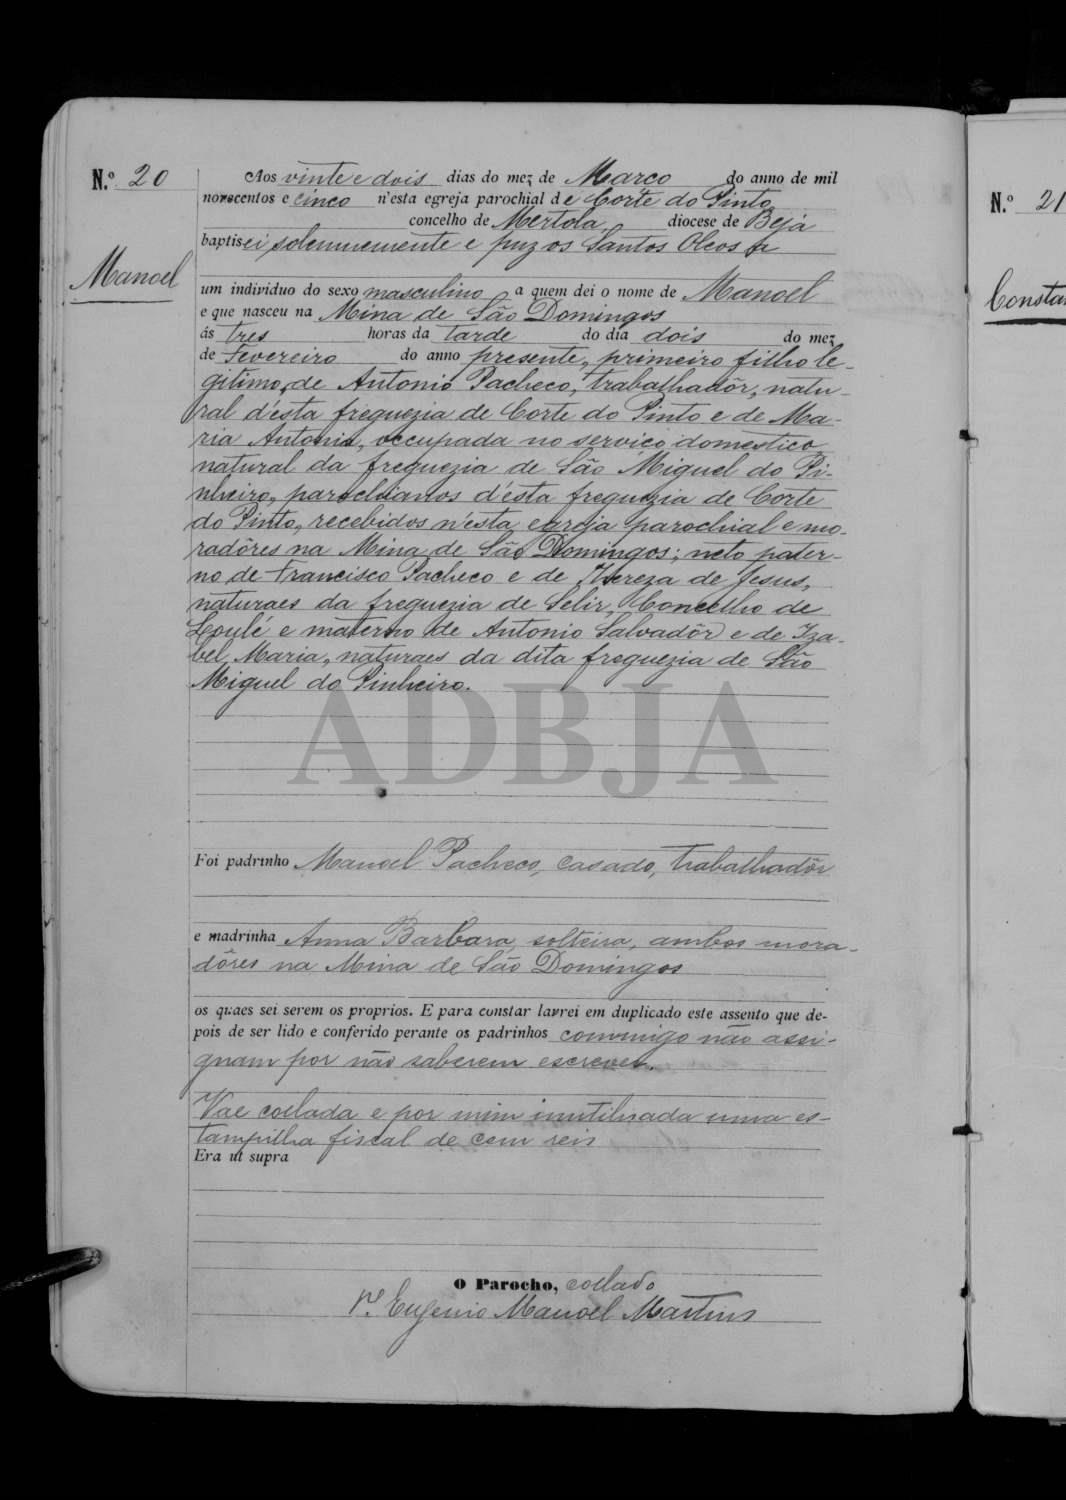 N.º 20
Aos vinte e dois dias do mez de Março do anno de mil
novecentos e cinco n'esta egreja parochial de Côrte do Pinto,
concelho de Mertola diocese de Beja
baptisei solemnemente e puz os Santos Oleos a
Manoel
um individuo do sexo masculino a quem dei o nome de Manoel
e que nasceu na Mina de São Domingos
ás tres horas da tarde do dia dois do mez
de Fevereiro do anno presente, primeiro filho le-
gitimo, de Antonio Pacheco, trabalhadôr, natu-
ral d'ésta freguezia de Corte do Pinto e de Ma-
ria Antonia, occupada no serviço domestico,
natural da freguezia de São Miguel do Pi-
nheiro, parochianos d'ésta freguezia de Corte
do Pinto, recebidos n'ésta egreja parochial e mo-
radôres na Mina de São Domingos; neto pater-
no de Francisco Pacheco e de Thereza de Jesus,
naturaes da freguezia de Selir, Concelho de
Loulé e materno de Antonio Salvadôr e de Iza-
bel Maria, naturaes da dita freguezia de São
Miguel do Pinheiro.
ADBJA
Foi padrinho Manoel Pacheco, casado, trabalhadôr
e madrinha Anna Barbara, solteira, ambos mora-
dôres na Mina de São Domingos
os quaes sei serem os proprios. E para constar lavrei em duplicado este assento que de-
pois de ser lido e conferido perante os padrinhos commigo não assi-
gnam por não saberem escrever.
Vae collada e por mim inutilisada uma es-
tampilha fiscal de cem reis
Era ut supra
O Parocho, collado
P.e Eugenio Manoel Martins
N.º 21
Constan